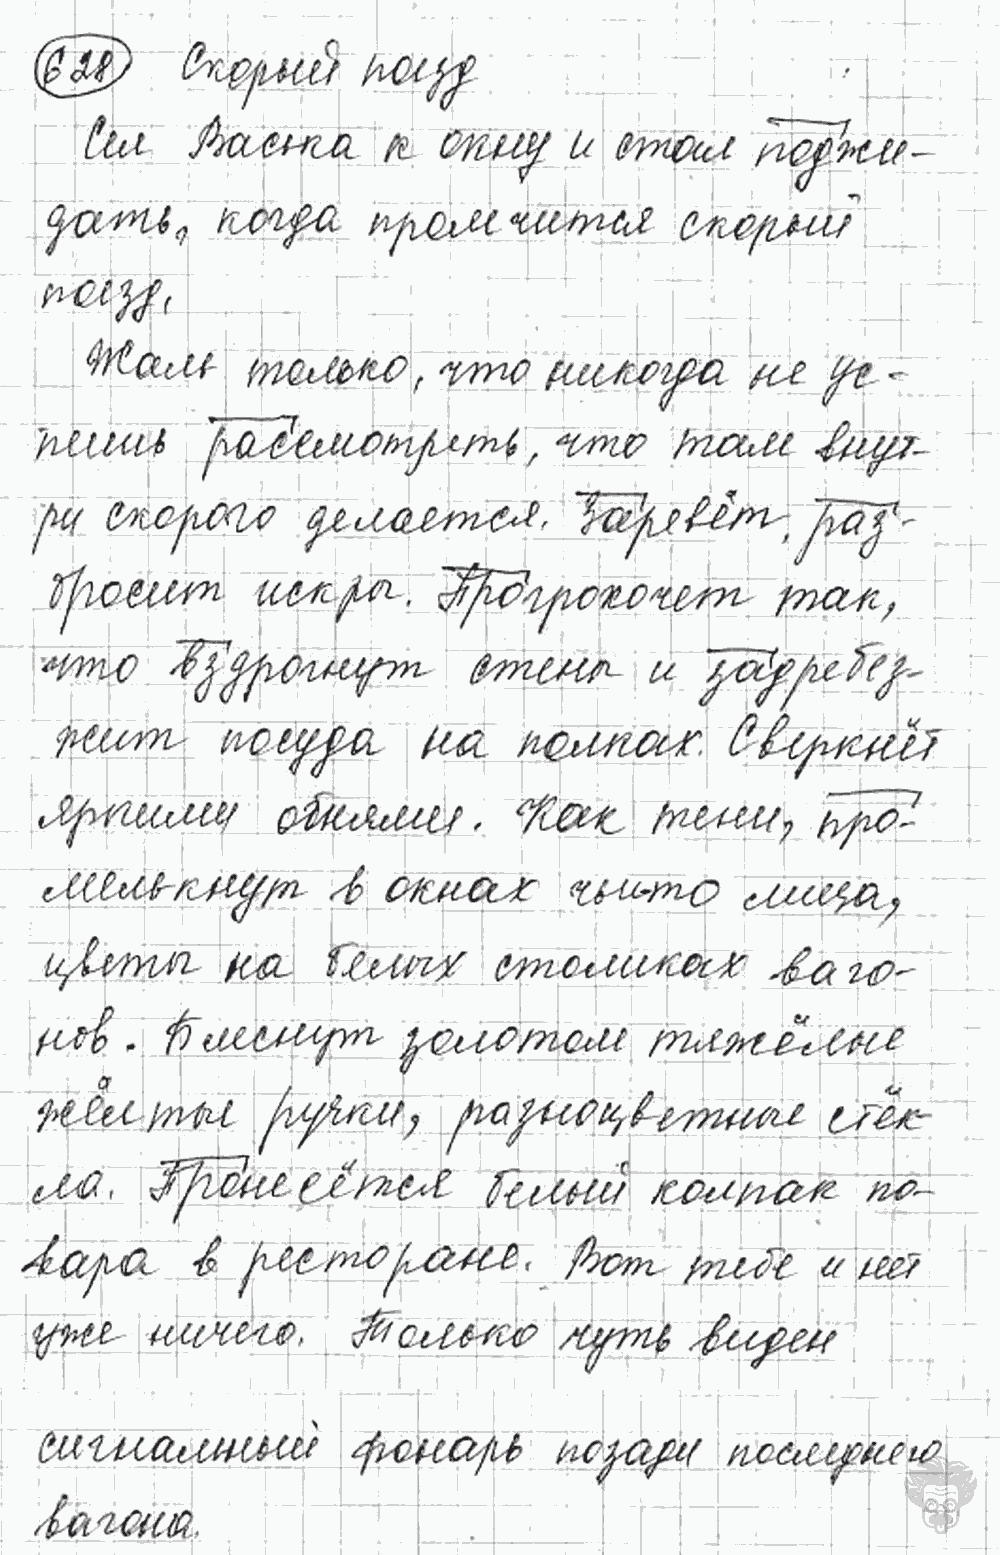 628 Скорый поезд
Сел Васька к окну и стал поджи-
дать, когда промчится скорый
поезд.
Жаль только, что никогда не ус-
пеешь рассмотреть, что там внут-
ри скорого делается. Заревёт, раз-
бросит искры. Прогрохочет так,
что вздрогнут стены и задребез-
жит посуда на полках. Сверкнёт
яркими огнями. Как тени, про-
мелькнут в окнах чьи-то лица,
цветы на белых столиках ваго-
нов. Блеснут золотом тяжёлые
жёлтые ручки, разноцветные стёк
ла. Пронесётся белый колпак по-
вара в ресторане. Вот тебе и нет
уже ничего. Только чуть виден
сигнальный фонарь позади последнего
вагона.